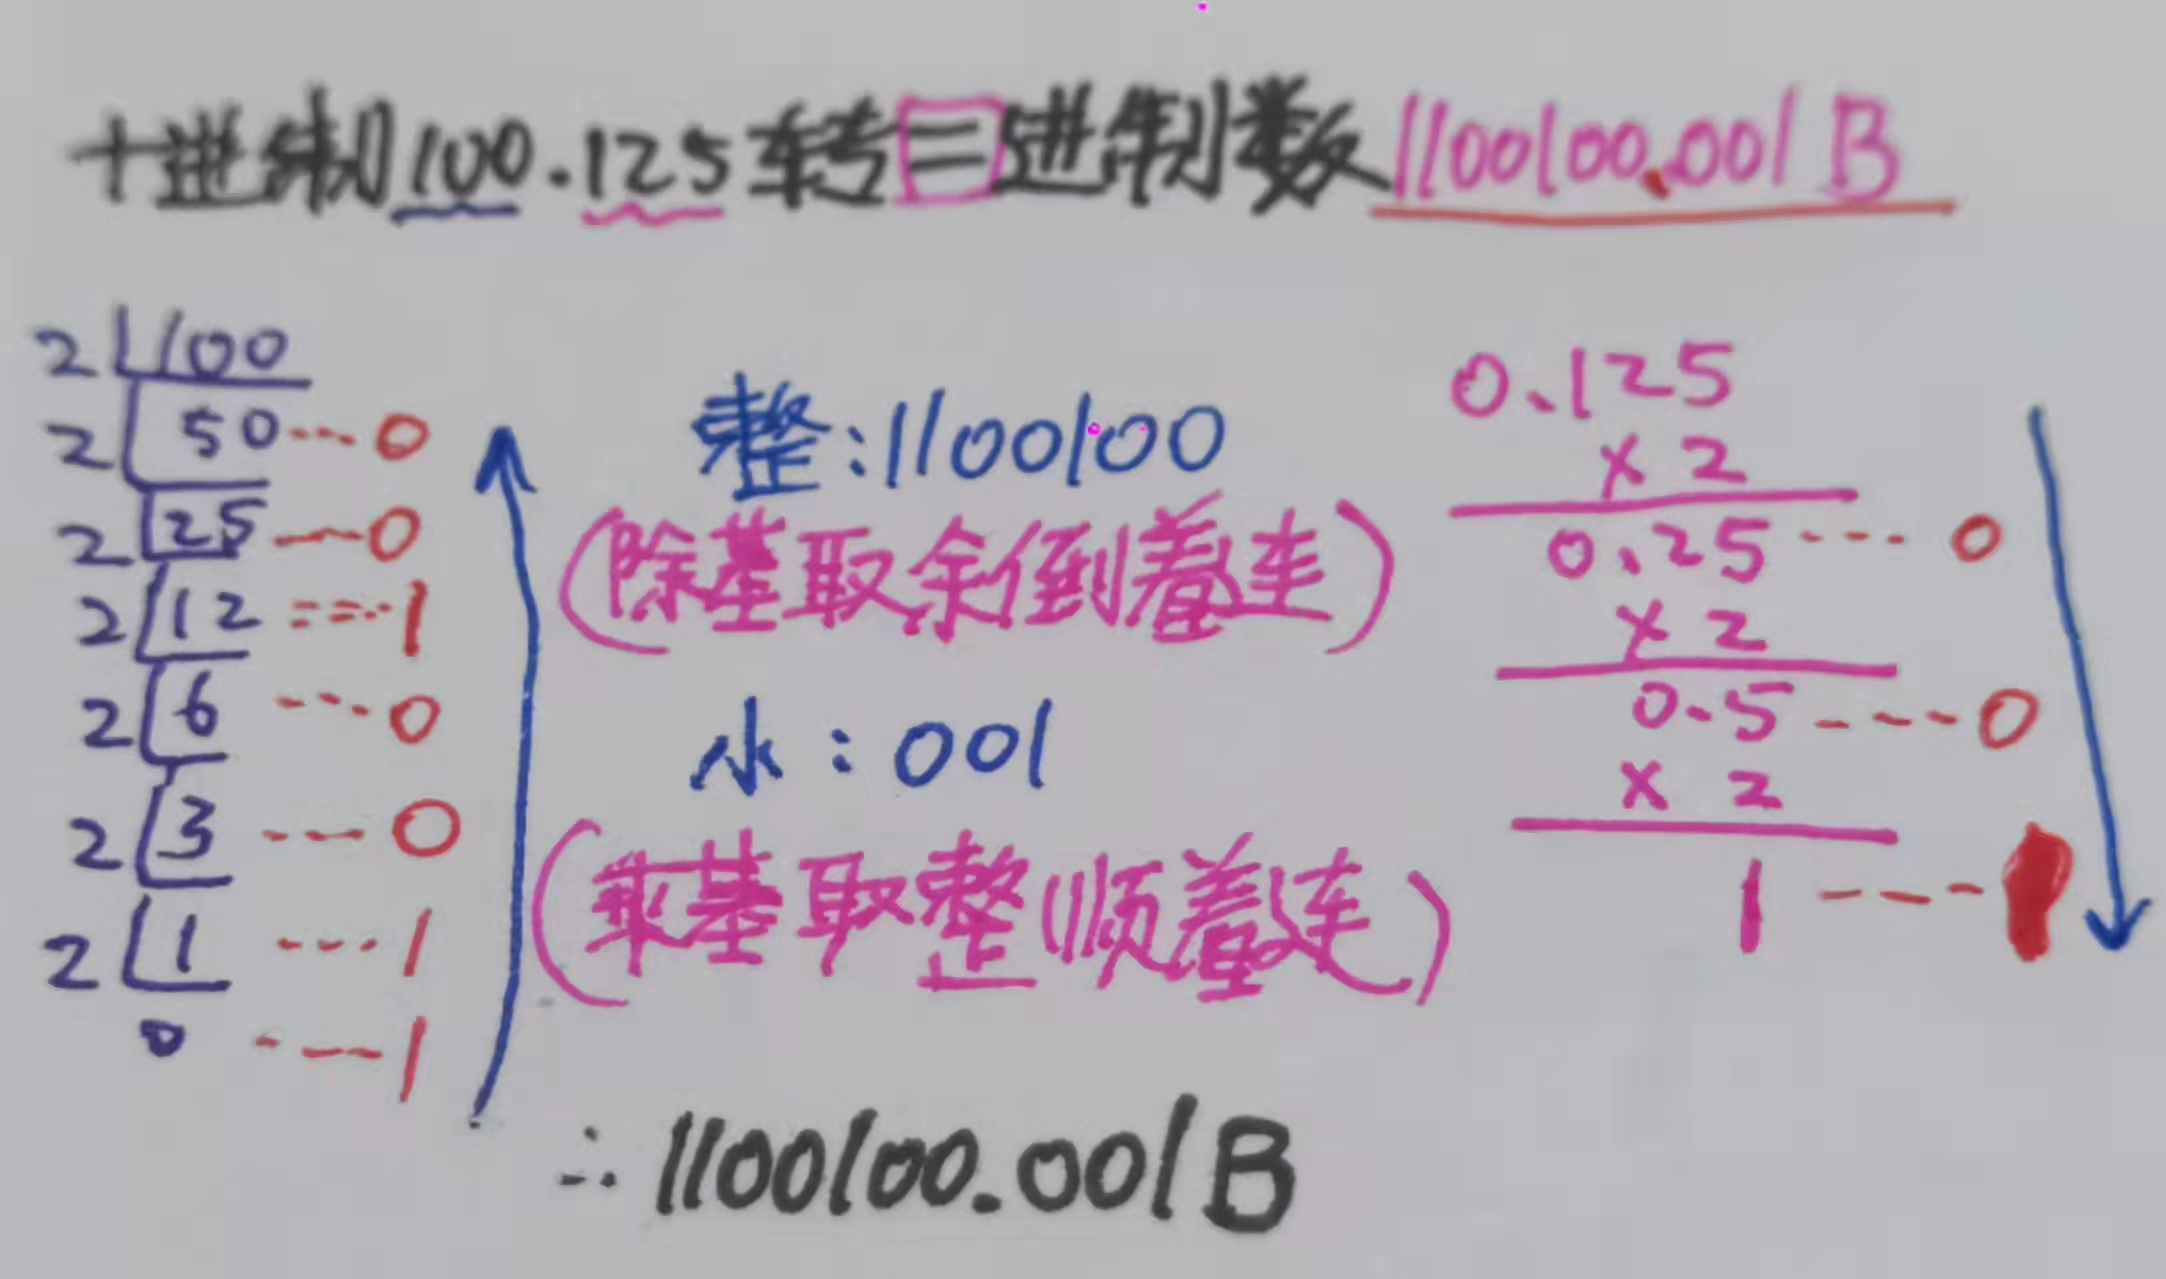 十进制100.125转二进制数1100100.001B
2 100
2 50 --- 0
2 25 --- 0
2 12 --- 1
2 6 --- 0
2 3 --- 0
2 1 --- 1
0 --- 1
整:1100100
(除基取余倒着连)
小:001
(乘基取整顺着连)
0.125
×2
0.25 ---- 0
×2
0.5 ---- 0
×2
1 ---- 1
∴1100100.001B